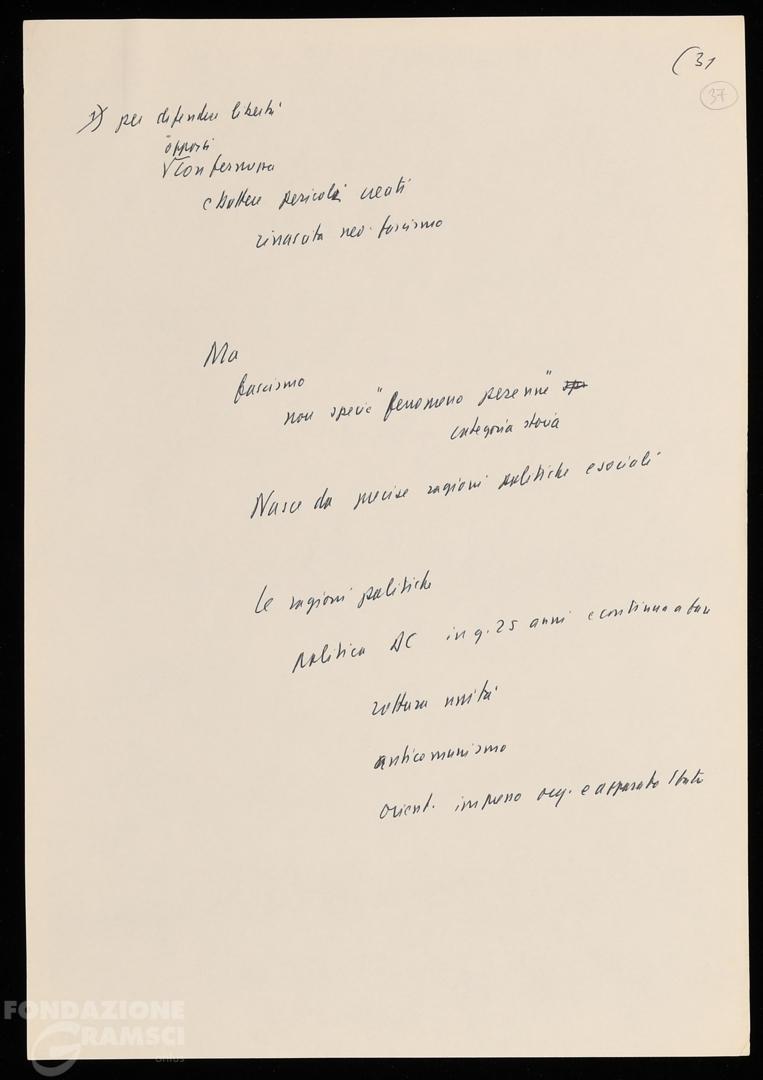 (31
37
1) per difendere libertà
opporsi
con fermezza
e battere pericoli creati
rinascita neo-fascismo
Ma
fascismo
non specie "fenomeno perenne"
categoria storia
Nasce da precise ragioni politiche e sociali
Le ragioni politiche
politica DC in q. 25 anni e continua a fare
rottura unità
anticomunismo
orient. impresso org. e apparato Stato
FONDAZIONE
GRAMSCI
onlus